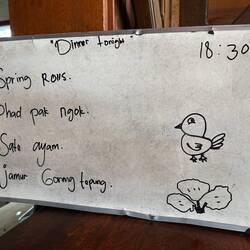 "Dinner tonight"
18:30
Spring Rolls.
Phad pak ngok.
Sate ayam.
jamur Goreng tepung.